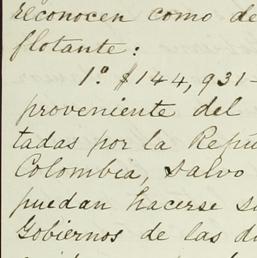 reconocen como de
flotante:
1º $144,931-
proveniente del
tadas por la Repú
Colombia, salvo
puedan hacerse s
Gobiernos de las d